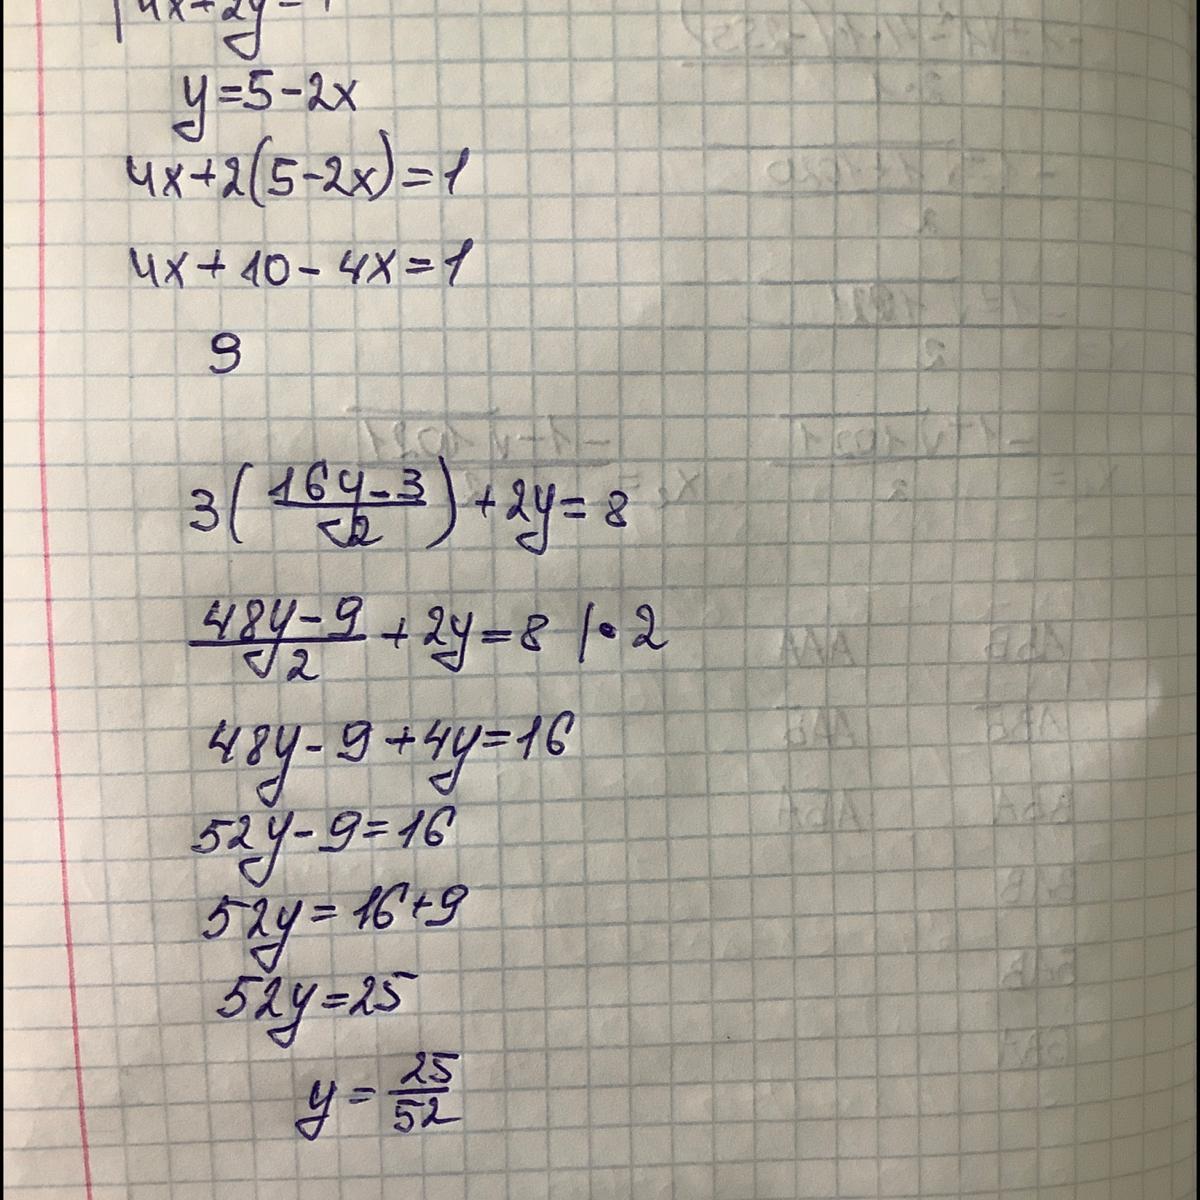 4x+2y=1
y=5-2x
4x+2(5-2x)=1
4x+10-4x=1
9
3(\frac{16y-3}{2})+2y=8
\frac{48y-9}{2}+2y=8 |•2
48y-9+4y=16
52y-9=16
52y=16+9
52y=25
y=\frac{25}{52}